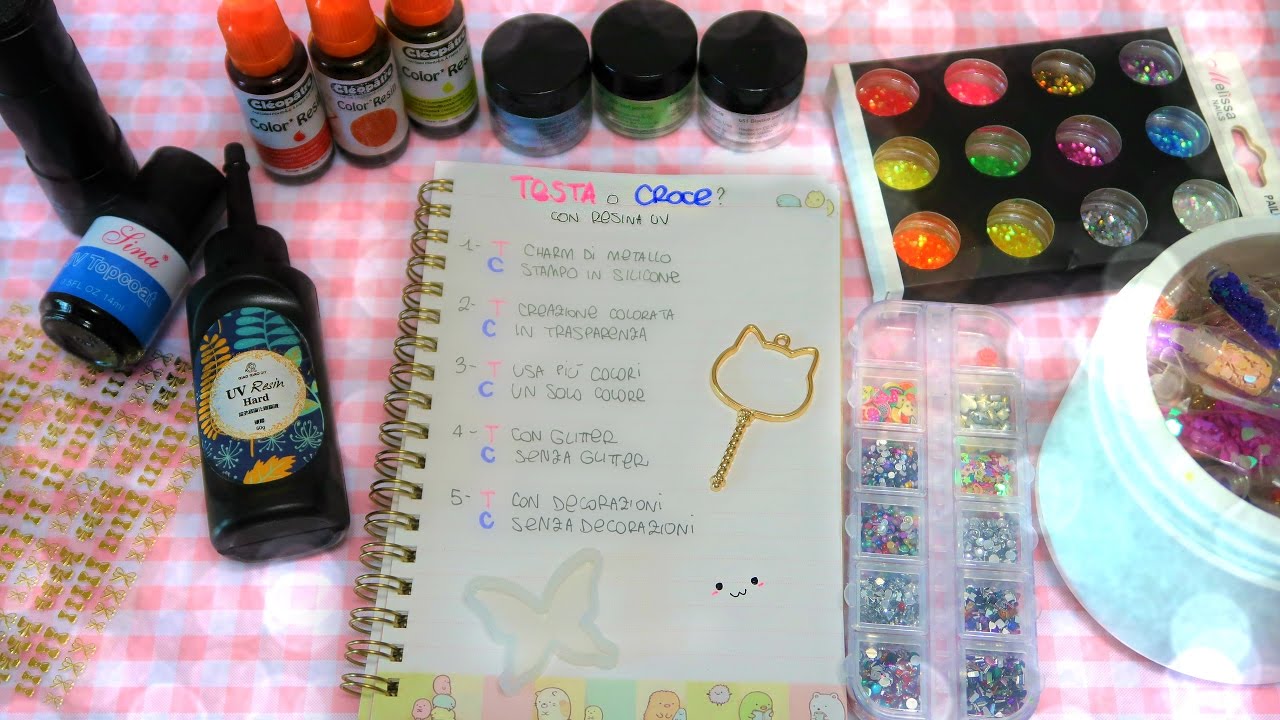 Cléopâtre
Color' Resin
Cléopâtre
Color' Resin
Cléopâtre
Color' Resin
Melissa
NAILS
PAIL
Sina*
UV Topcoat
0.5FL OZ 14ml
UV Resin
Hard
60g
TESTA o CROCE?
CON RESINA UV
1- T CHARM DI METALLO
C STAMPO IN SILICONE
2- T CREAZIONE COLORATA
C IN TRASPARENZA
3- T USA PIÙ COLORI
C UN SOLO COLORE
4- T CON GLITTER
C SENZA GLITTER
5- T CON DECORAZIONI
C SENZA DECORAZIONI